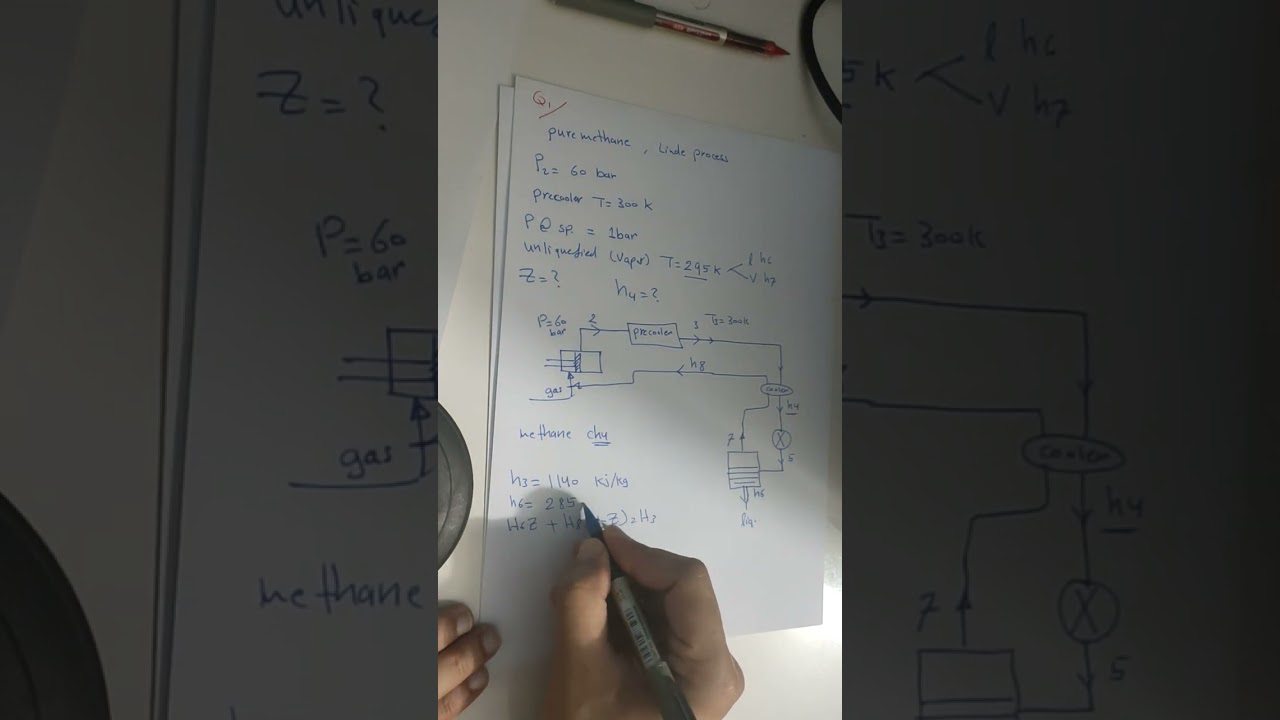 Q1/
pure methane , Linde process
P2 = 60 bar
precooler T=300 k
P @ sp. = 1bar
unliquefied (Vapur) T=295k
l h6
V h7
Z=?
h4=?
P=60
bar
2
precoler
3
T3=300k
h8
gas
cooler
h4
7
5
h6
liq.
methane ch4
h3=1140 kj/kg
h6= 285
H6Z + H8 Z)=H3